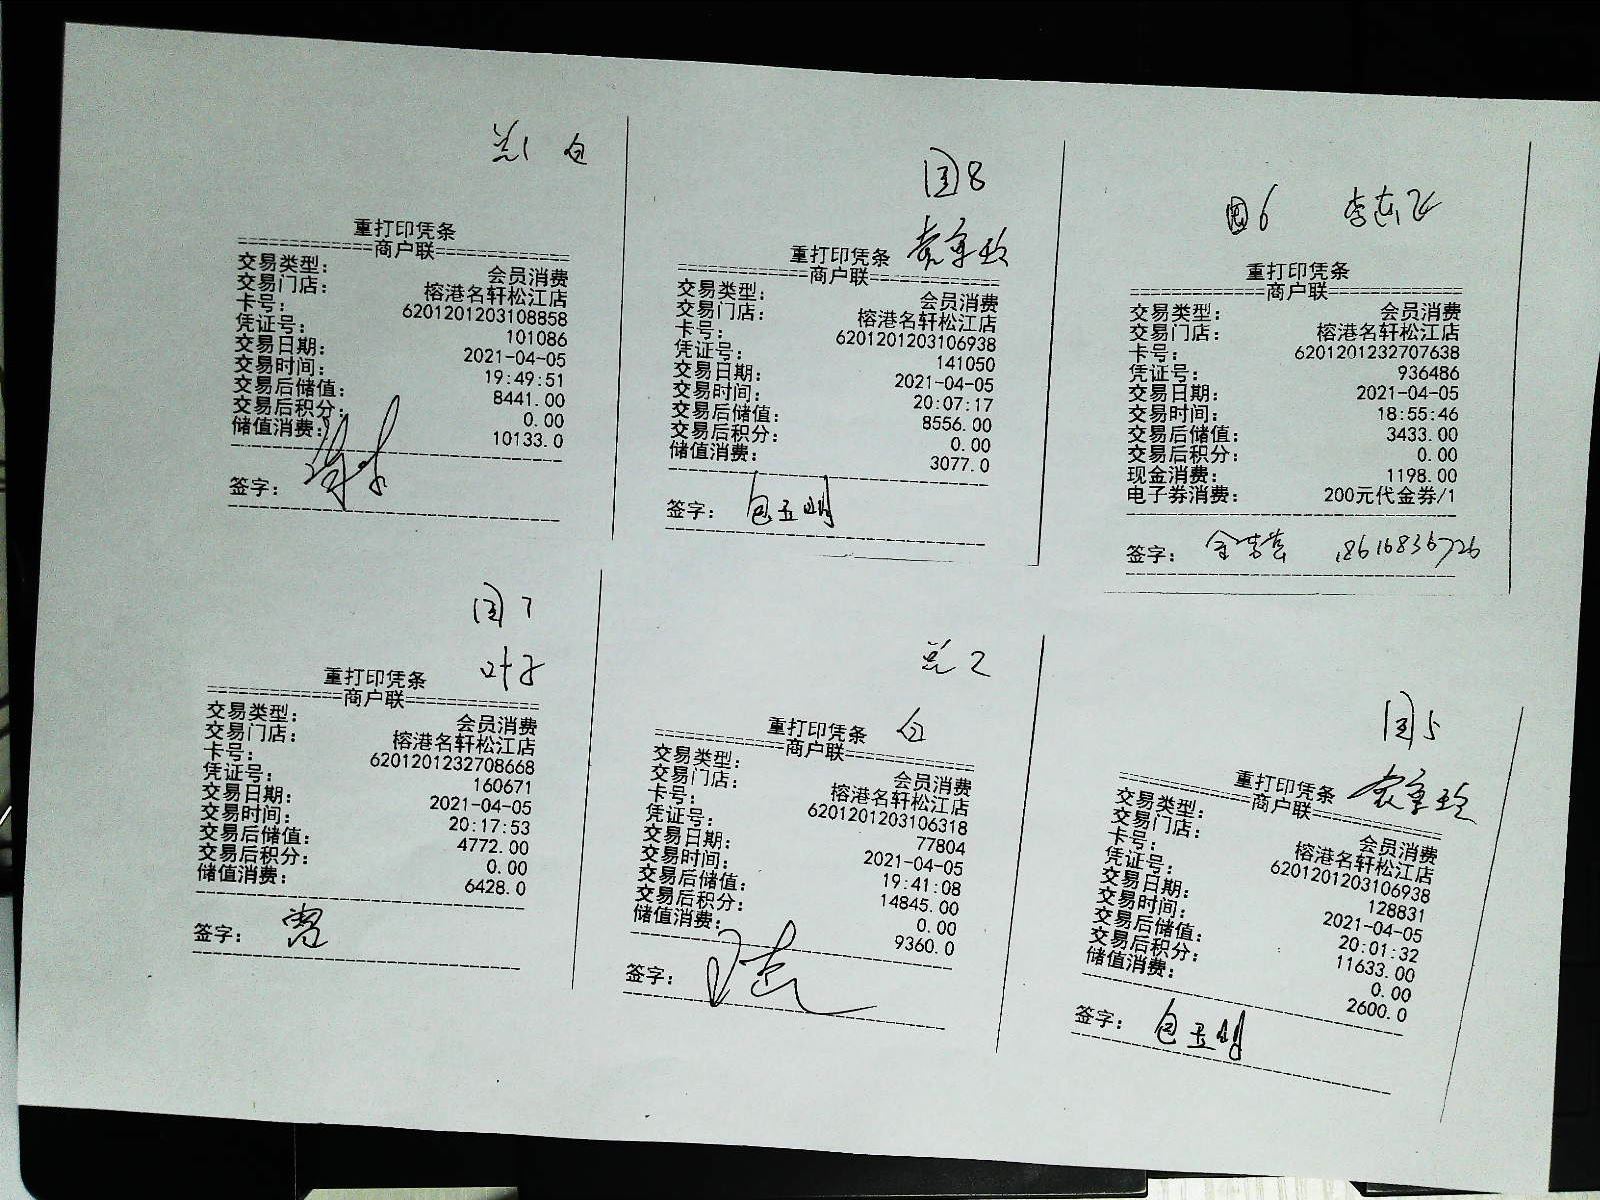 重打印凭条
=============商户联=============
交易类型: 会员消费
交易门店: 榕港名轩松江店
卡号: 6201201203108858
凭证号: 101086
交易日期: 2021-04-05
交易时间: 19:49:51
交易后储值: 8441.00
交易后积分: 0.00
储值消费: 10133.0
签字:
国8
重打印凭条
=============商户联=============
交易类型: 会员消费
交易门店: 榕港名轩松江店
卡号: 6201201203106938
凭证号: 141050
交易日期: 2021-04-05
交易时间: 20:07:17
交易后储值: 8556.00
交易后积分: 0.00
储值消费: 3077.0
签字: 包玉明
国6
重打印凭条
=============商户联=============
交易类型: 会员消费
交易门店: 榕港名轩松江店
卡号: 6201201232707638
凭证号: 936486
交易日期: 2021-04-05
交易时间: 18:55:46
交易后储值: 3433.00
交易后积分: 0.00
现金消费: 1198.00
电子券消费: 200元代金券/1
签字: 18616836726
国7
叶子
重打印凭条
=============商户联=============
交易类型: 会员消费
交易门店: 榕港名轩松江店
卡号: 6201201232708668
凭证号: 160671
交易日期: 2021-04-05
交易时间: 20:17:53
交易后储值: 4772.00
交易后积分: 0.00
储值消费: 6428.0
签字:
重打印凭条
=============商户联=============
交易类型: 会员消费
交易门店: 榕港名轩松江店
卡号: 6201201203106318
凭证号: 77804
交易日期: 2021-04-05
交易时间: 19:41:08
交易后储值: 14845.00
交易后积分: 0.00
储值消费: 9360.0
签字:
国5
重打印凭条
=============商户联=============
交易类型: 会员消费
交易门店: 榕港名轩松江店
卡号: 6201201203106938
凭证号: 128831
交易日期: 2021-04-05
交易时间: 20:01:32
交易后储值: 11633.00
交易后积分: 0.00
储值消费: 2600.0
签字: 包玉明